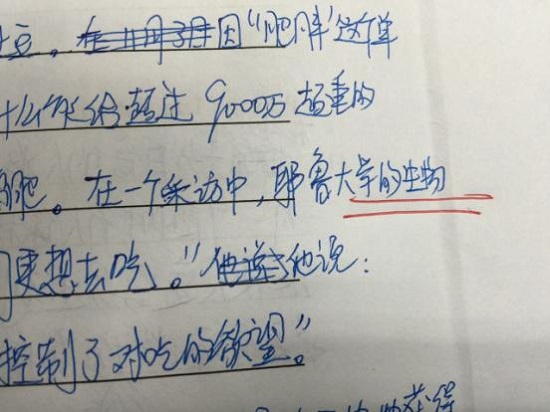 豆。因"肥胖"这样
什么能给超过9000万超重的
肥。在一个采访中，耶鲁大学的生物
们更想去吃。"他说：
控制了对吃的欲望。"
获得